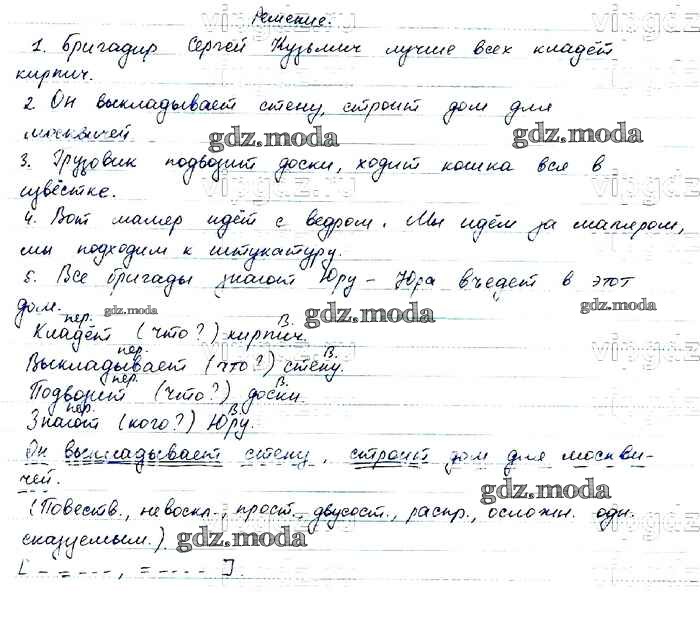 Решение.
1. Бригадир Сергей Кузьмич лучше всех кладёт
кирпич.
2 Он выкладывает стену, строит дом для
москвичей gdz.moda gdz.moda
3. Грузовик подвозит доски, ходит кошка вся в
извёстке.
4. Вот маляр идёт с ведром. Мы идём за маляром,
мы подходим к штукатуру.
5. Все бригады знают Юру - Юра въедет в этот
дом. gdz.moda gdz.moda gdz.moda
пер. В.
Кладёт (что?) кирпич.
пер. В.
Выкладывает (что?) стену.
пер. В.
Подвозит (что?) доски.
пер. В.
Знают (кого?) Юру.
Он выкладывает стену, строит дом для москви-
чей. gdz.moda
(Повеств., невоскл., прост., двусост., распр., осложн. одн.
сказуемым.). gdz.moda
[ - = - - - , = - - - - ].